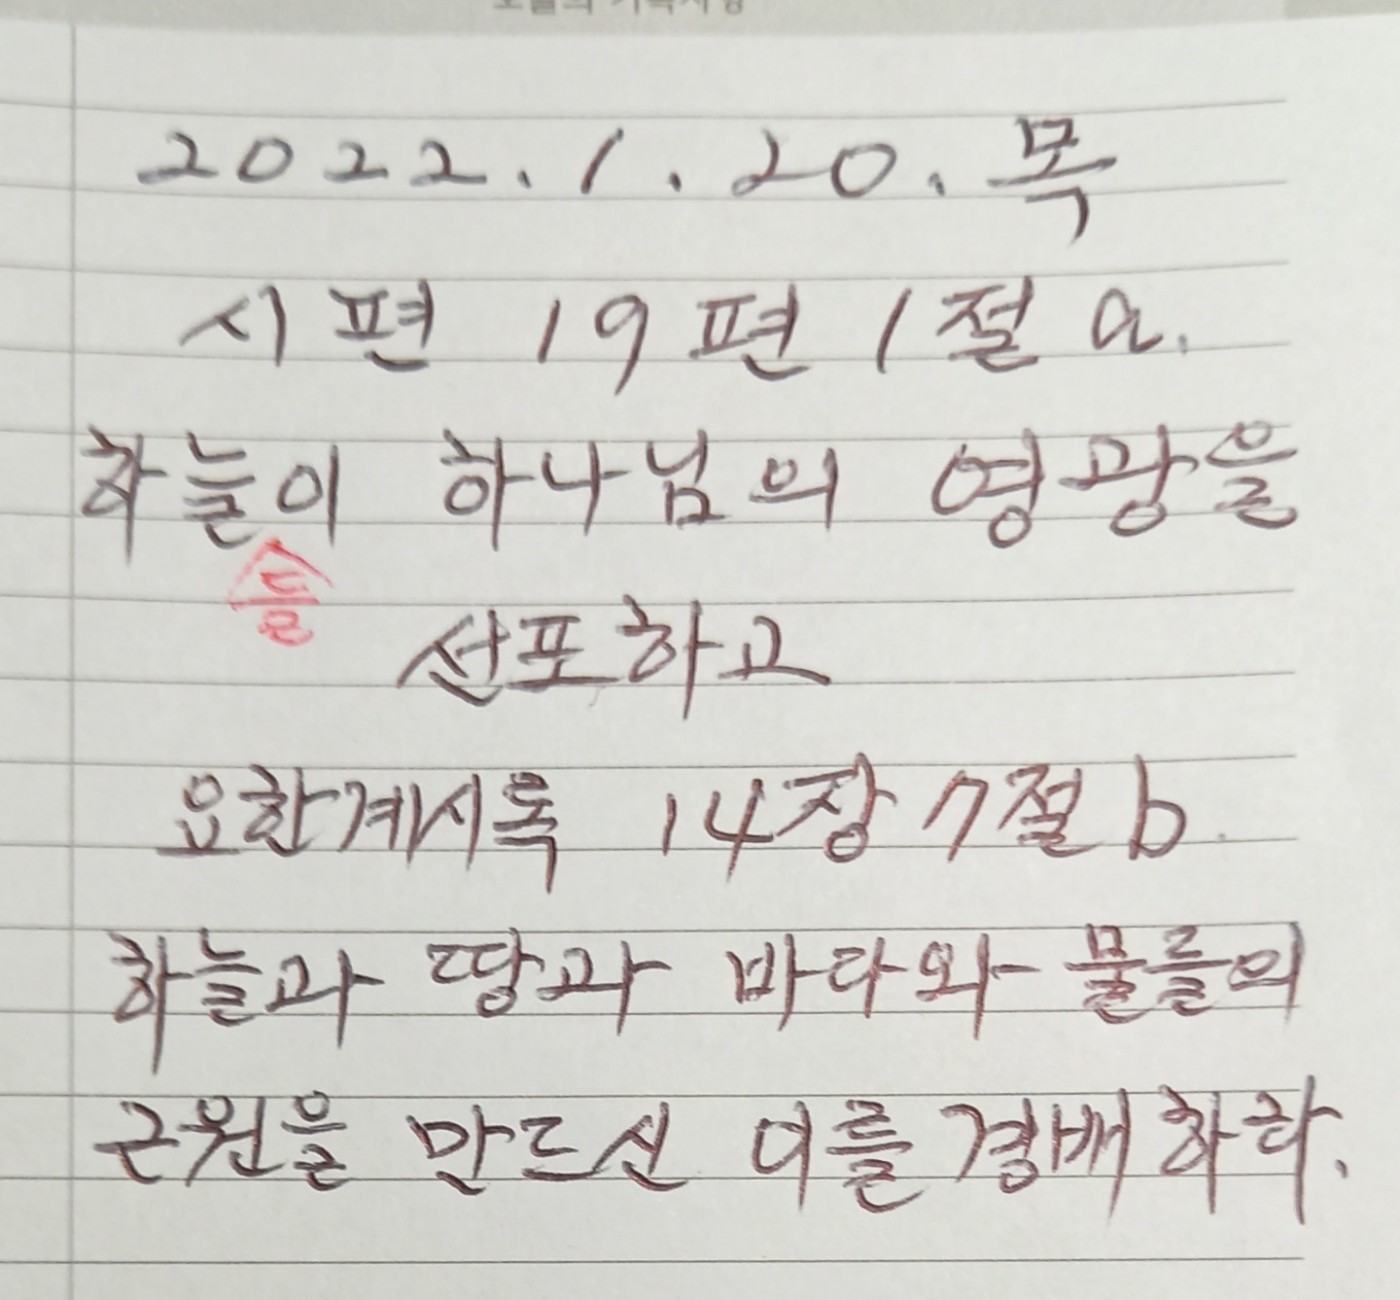 2022.1.20.목
시편 19편 1절 a.
하늘이 하나님의 영광을
들
선포하고
요한계시록 14장 7절 b
하늘과 땅과 바다와 물들의
근원을 만드신 이를 경배하라.